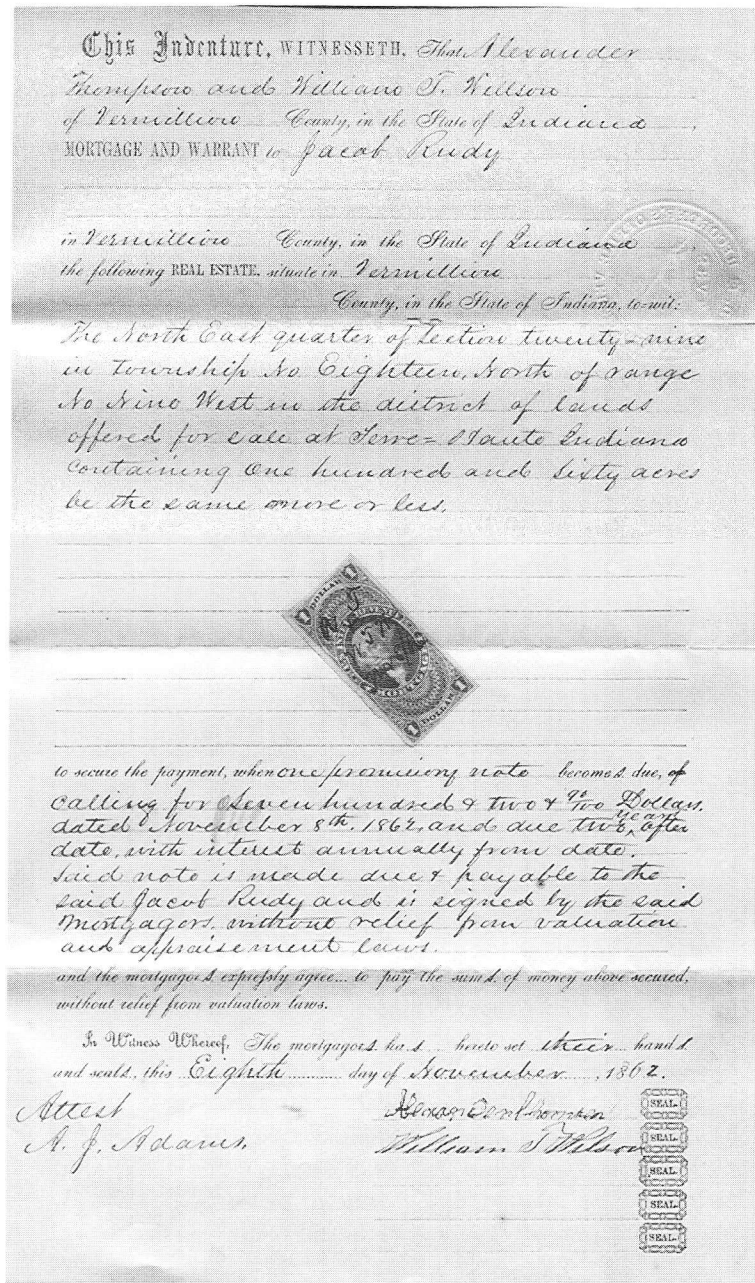 This Indenture, WITNESSETH, That Alexander
Thompson and William T. Willson
of Vermillion County, in the State of Indiana
MORTGAGE AND WARRANT to Jacob Rudy
in Vermillion County, in the State of Indiana
the following REAL ESTATE, situate in Vermillion
County, in the State of Indiana, to-wit:
The North East quarter of Section twenty-nine
in Township No Eighteen, North of range
No Nine West in the district of lands
offered for sale at Terre=Haute Indiana
containing One hundred and Sixty acres
be the same more or less.
1 DOLLAR 1
MORTGAGE
1 DOLLAR 1
to secure the payment, when one promisory note becomes due, of
calling for Seven hundred & two & 90/100 Dollars,
dated November 8th. 1862, and due two years after
date, with interest annually from date.
Said note is made due & payable to the
said Jacob Rudy and is signed by the said
Mortgagors, without relief from valuation
and appraisement laws.
and the mortgagors expressly agree... to pay the sums of money above secured,
without relief from valuation laws.
In Witness Whereof, The mortgagors has hereto set their hands
and seals, this Eighth day of November, 1862.
Attest
A. J. Adams.
Alexander Thomson SEAL.
William T Wilson SEAL.
SEAL.
SEAL.
SEAL.